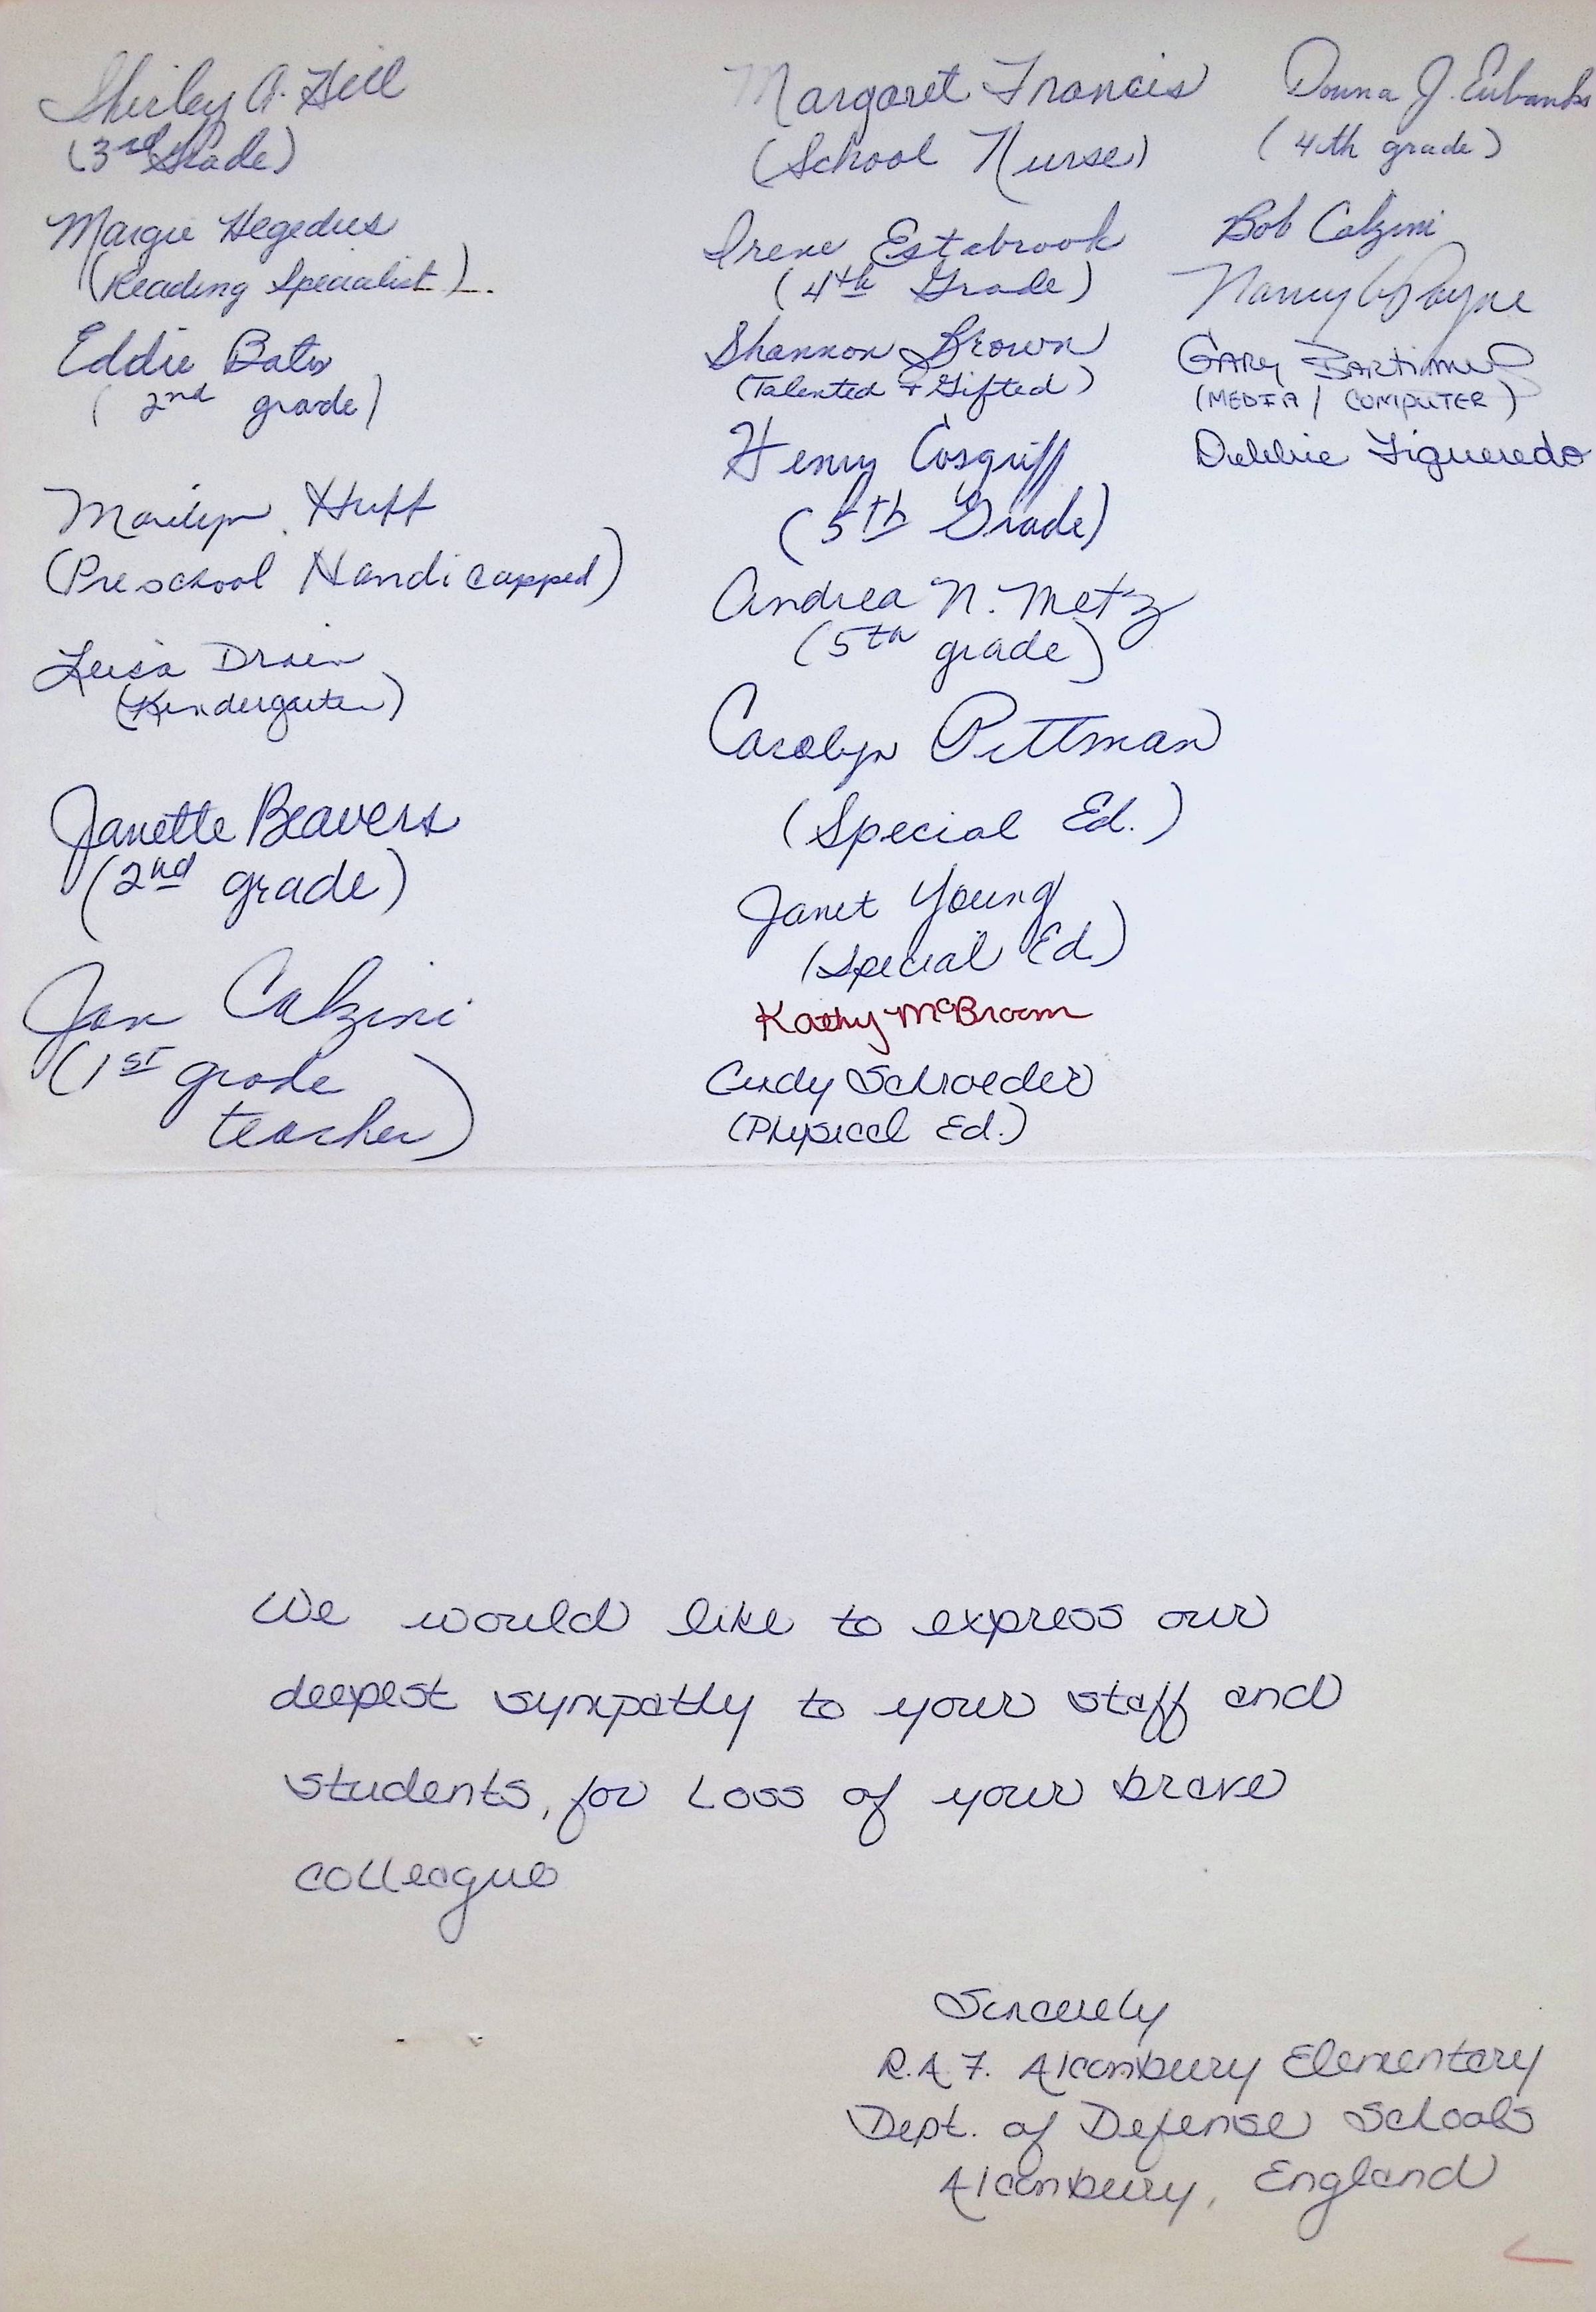 Shirley A. Hill
(3rd Grade)
Margie Hegedus
(Reading Specialist).
Eddie Bates
(2nd grade)
Marilyn Huff
(Preschool Handicapped)
Leisa Drain
(Kindergarten)
Janette Beavers
(2nd grade)
Jan Calzini
(1st grade
teacher)
Margaret Francis
(School Nurse)
Irene Estabrook
(4th Grade)
Shannon Brown
(Talented & Gifted)
Henry Cosgriff
(5th Grade)
Andrea N. Metz
(5th grade)
Carolyn Pittman
(Special Ed.)
Janet Young
(Special Ed.)
Kathy McBroom
Cindy Schroeder
(Physical Ed.)
Donna J. Eubanks
(4th grade)
Bob Calzini
Nancy Payne
GARY
(MEDIA / COMPUTER)
Debbie Figueredo
We would like to express our
deepest sympathy to your staff and
students, for Loss of your brave
colleague
Sincerely
R.A.F. Alconbury Elementary
Dept. of Defense Schools
Alconbury, England